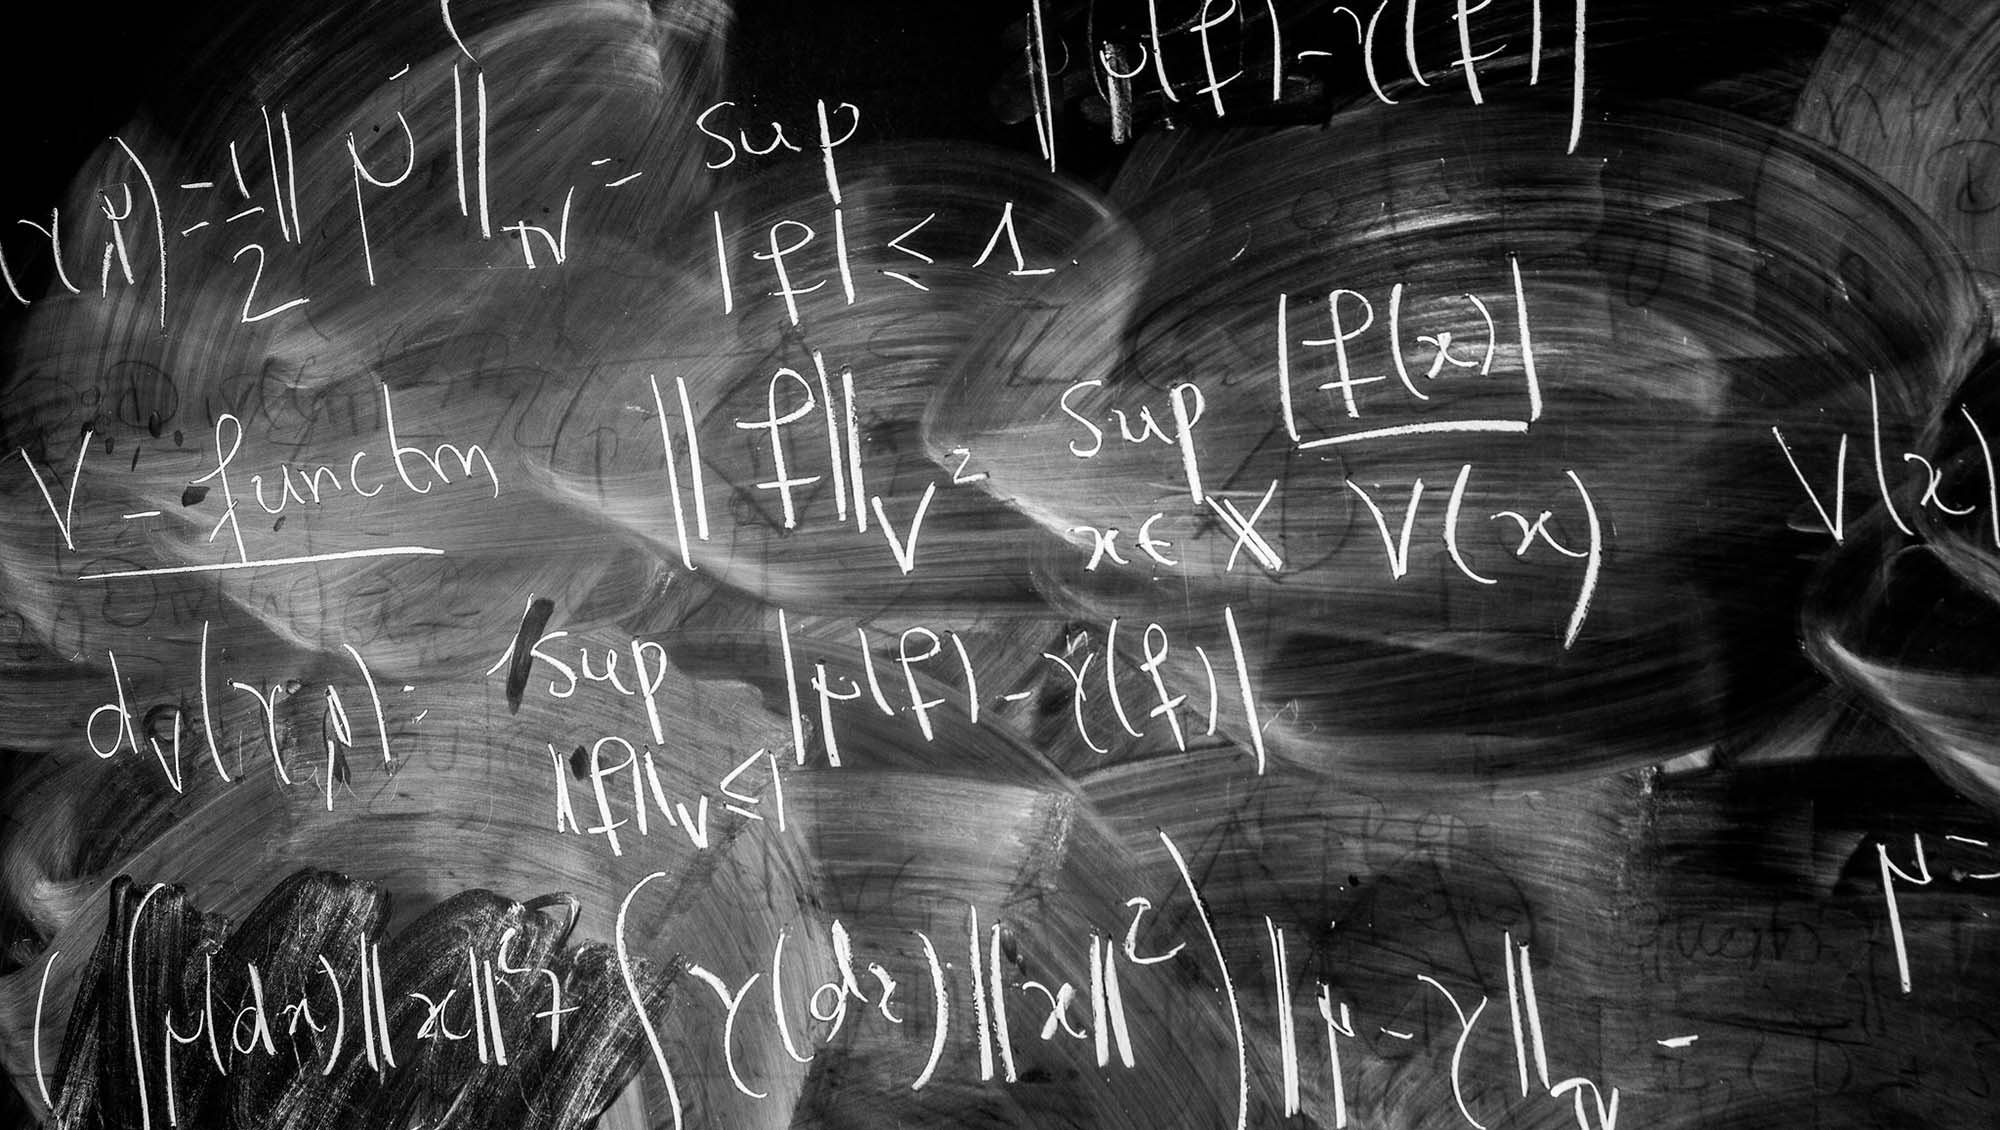 |μ(f)-γ(f)|
(γ,μ) = 1/2 || μ ||_TV = sup |f| ≤ 1
V-function ||f||_V = sup x∈X |f(x)| / V(x) V(x)
d_V(γ,μ) = sup ||f||_V ≤ 1 |μ(f)-γ(f)|
μ =
(∫μ(dx)||x||² + ∫γ(dx)||x||²) ||μ-γ||_TV -